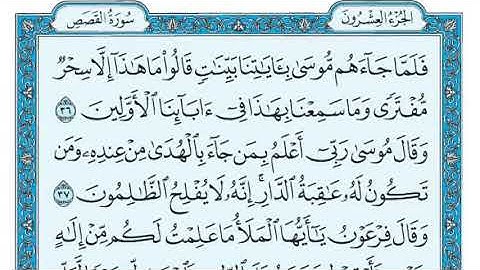 الجُزْءُ العِشْرُونَ
سُورَةُ القَصَصِ
فَلَمَّا جَآءَهُم مُّوسَىٰ بِـَٔايَـٰتِنَا بَيِّنَـٰتٍ قَالُوا۟ مَا هَـٰذَآ إِلَّا سِحْرٌ
مُّفْتَرًى وَمَا سَمِعْنَا بِهَـٰذَا فِىٓ ءَابَآئِنَا ٱلْأَوَّلِينَ ٣٦
وَقَالَ مُوسَىٰ رَبِّىٓ أَعْلَمُ بِمَن جَآءَ بِٱلْهُدَىٰ مِنْ عِندِهِۦ وَمَن
تَكُونُ لَهُۥ عَـٰقِبَةُ ٱلدَّارِ ۖ إِنَّهُۥ لَا يُفْلِحُ ٱلظَّـٰلِمُونَ ٣٧
وَقَالَ فِرْعَوْنُ يَـٰٓأَيُّهَا ٱلْمَلَأُ مَا عَلِمْتُ لَكُم مِّنْ إِلَـٰهٍ